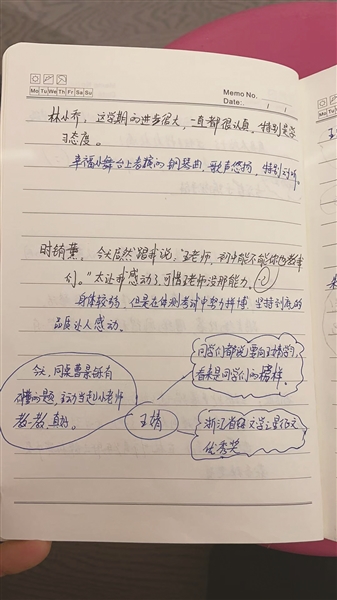 Mo Tu We Th Fr Sa Su
Memo No.
Date: / /
林小乔，这学期的进步很大，一直都很认真，特别是学
习态度。
幸福小舞台上表演的钢琴曲，歌声悠扬，特别好听。
时绮蔓，今天居然跟我说：“王老师，初中能不能你也教我
们。”太让我感动了，可惜王老师没那能力。
身体较弱，但是在体测考试中努力拼搏，坚持到底的
品质让人感动。
今天，同桌曹景铄有
不懂的题，主动当起小老师
教一教，真好。
王婧
同学们都说要向王婧学习，
看来是同学们的榜样。
浙江省级文学之星征文
优秀奖